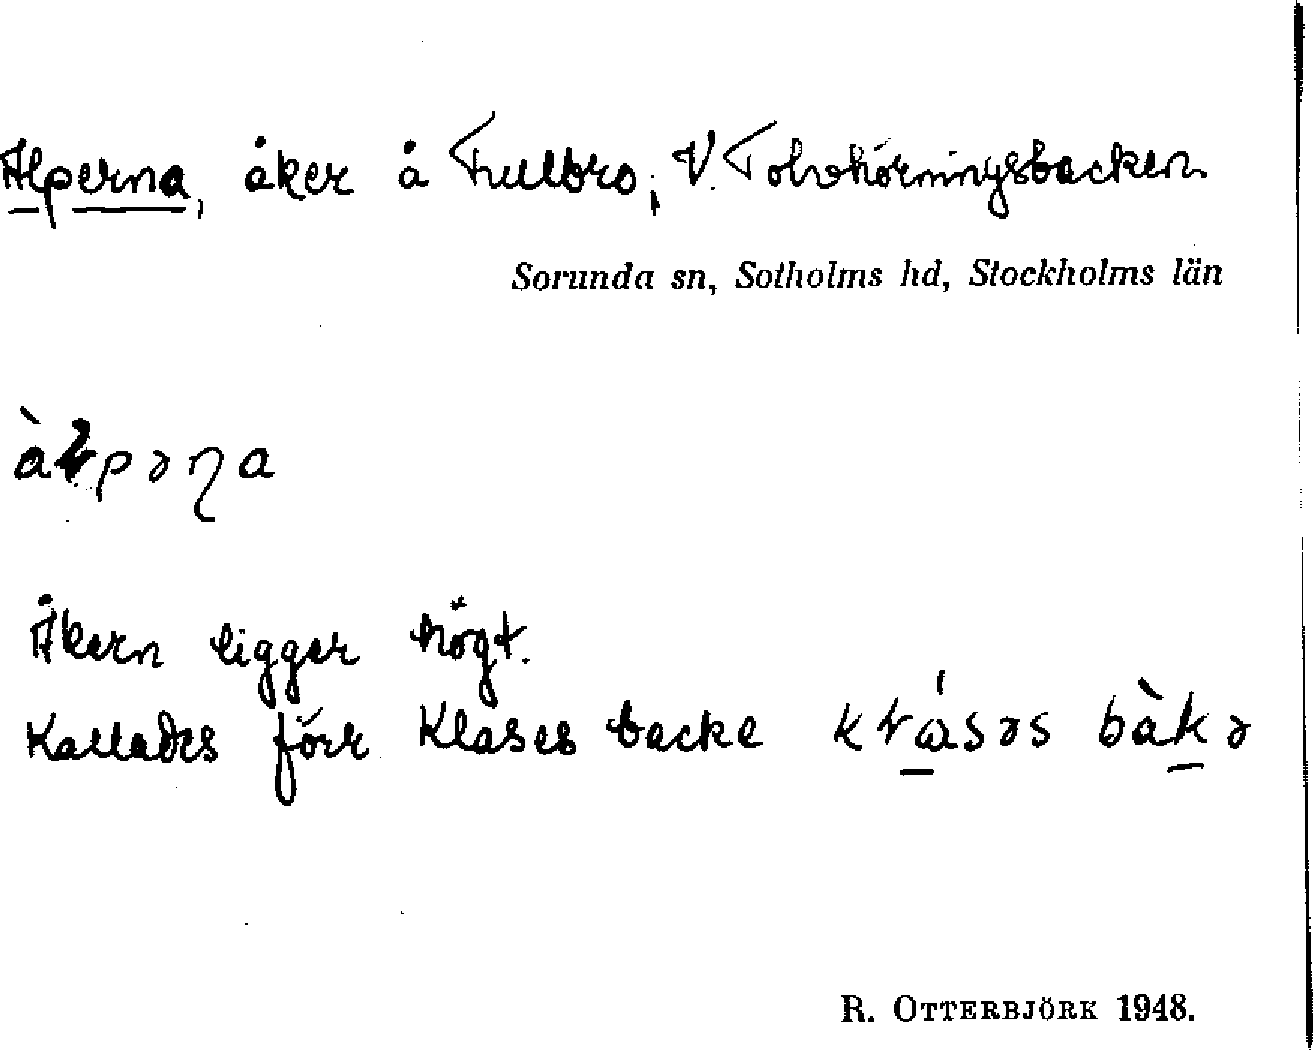 Alperna, åker å Fullbro; V. Tolvhörningsbacken
Sorunda sn, Sotholms hd, Stockholms län
Åkern ligger högt.
Kallades förr Klases backe
R. OTTERBJÖRK 1948.